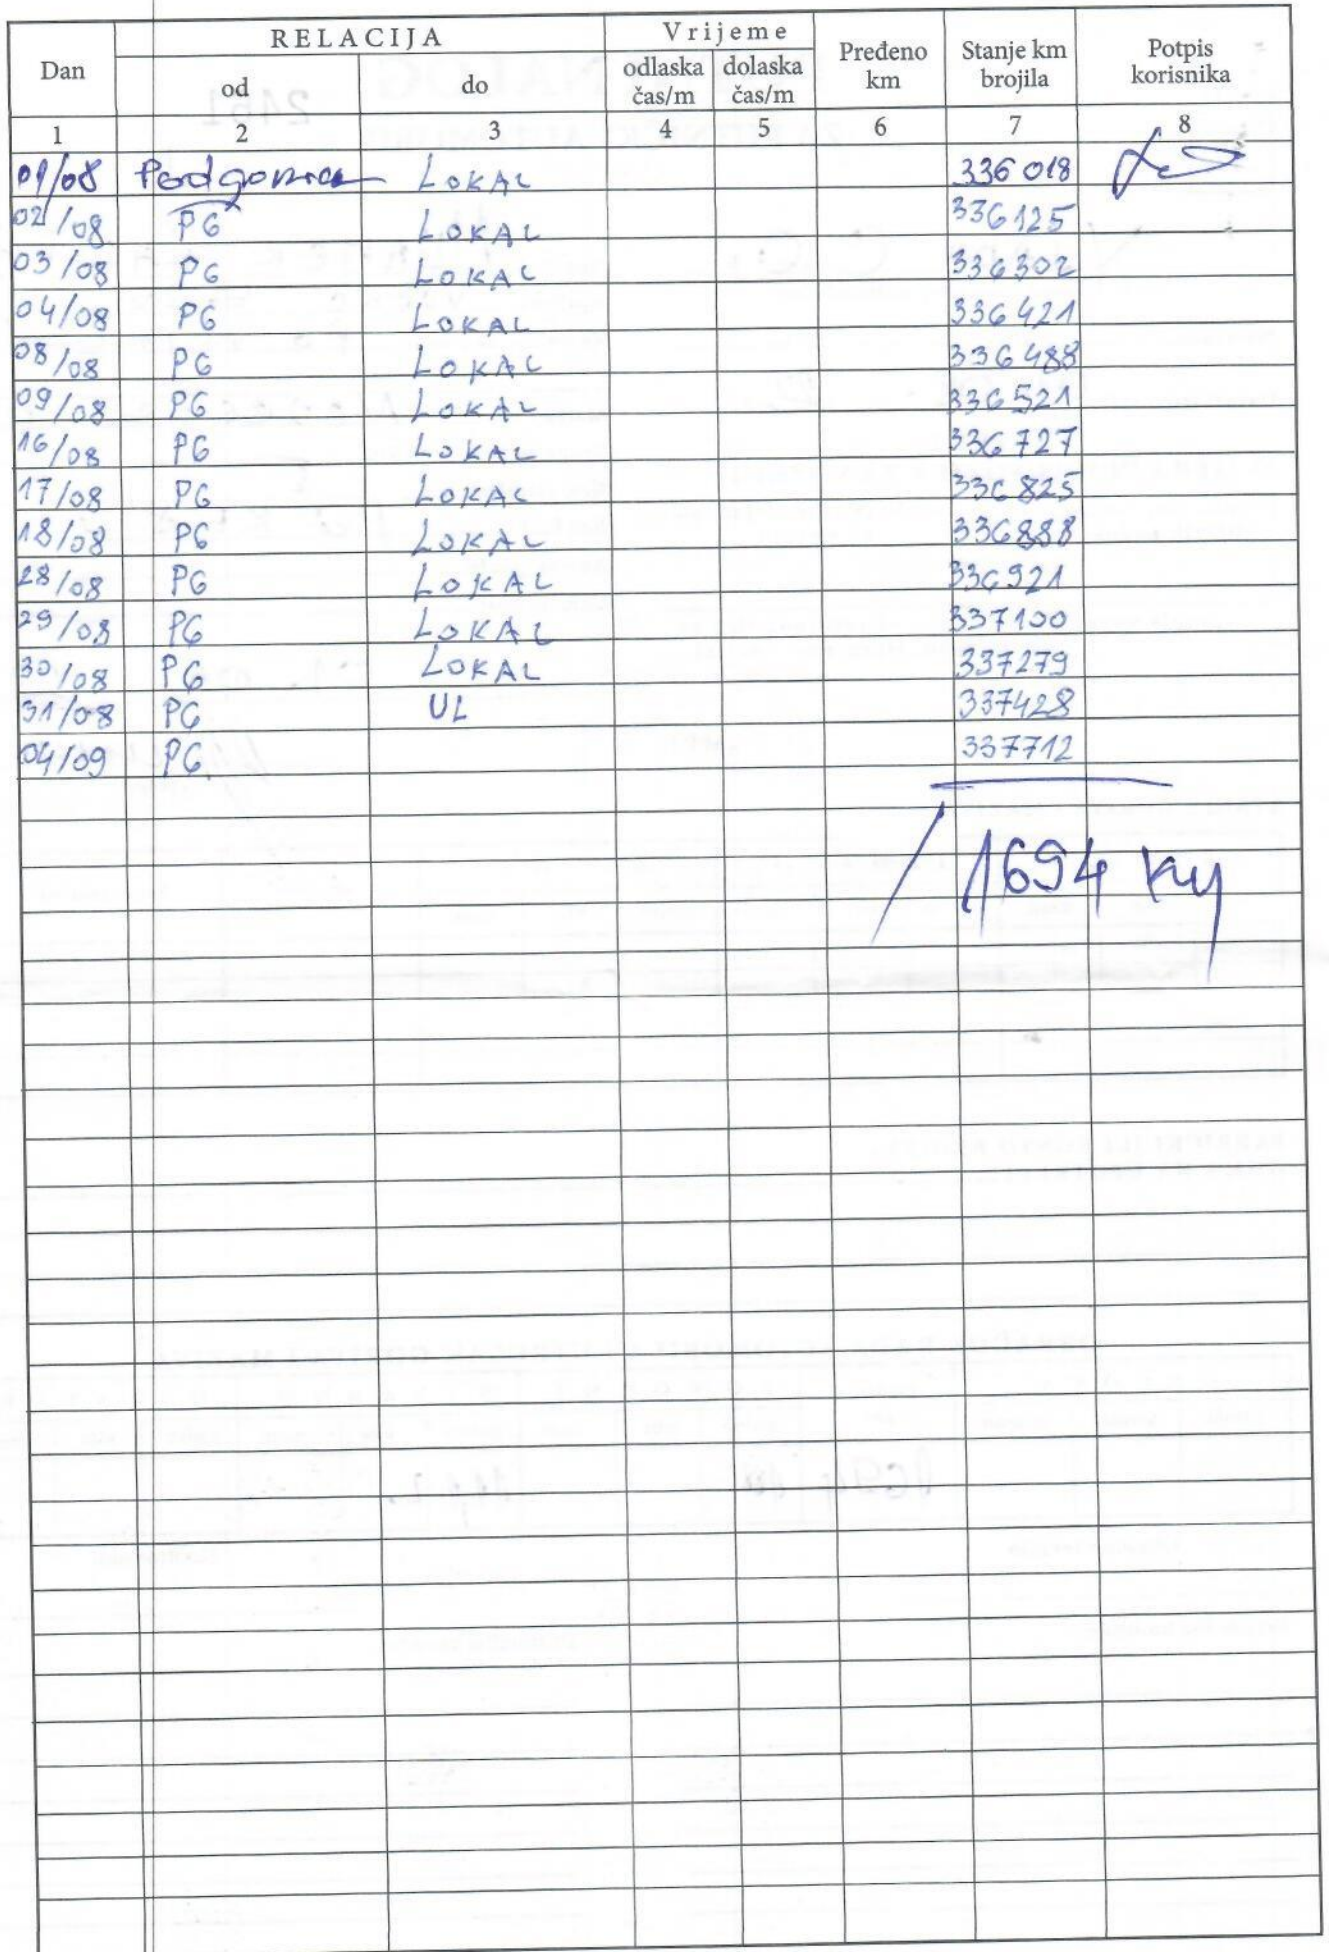 RELACIJA Vrijeme
Dan od do odlaska čas/m dolaska čas/m Pređeno km Stanje km brojila Potpis korisnika
1 2 3 4 5 6 7 8
01/08 Podgorica LOKAL 336 018
02/08 PG LOKAL 336125
03/08 PG LOKAL 336302
04/08 PG LOKAL 336421
08/08 PG LOKAL 336488
09/08 PG LOKAL 336521
16/08 PG LOKAL 336727
17/08 PG LOKAL 336825
18/08 PG LOKAL 336888
28/08 PG LOKAL 336921
29/08 PG LOKAL 337100
30/08 PG LOKAL 337279
31/08 PG UL 337428
04/09 PG 337712
1694 km